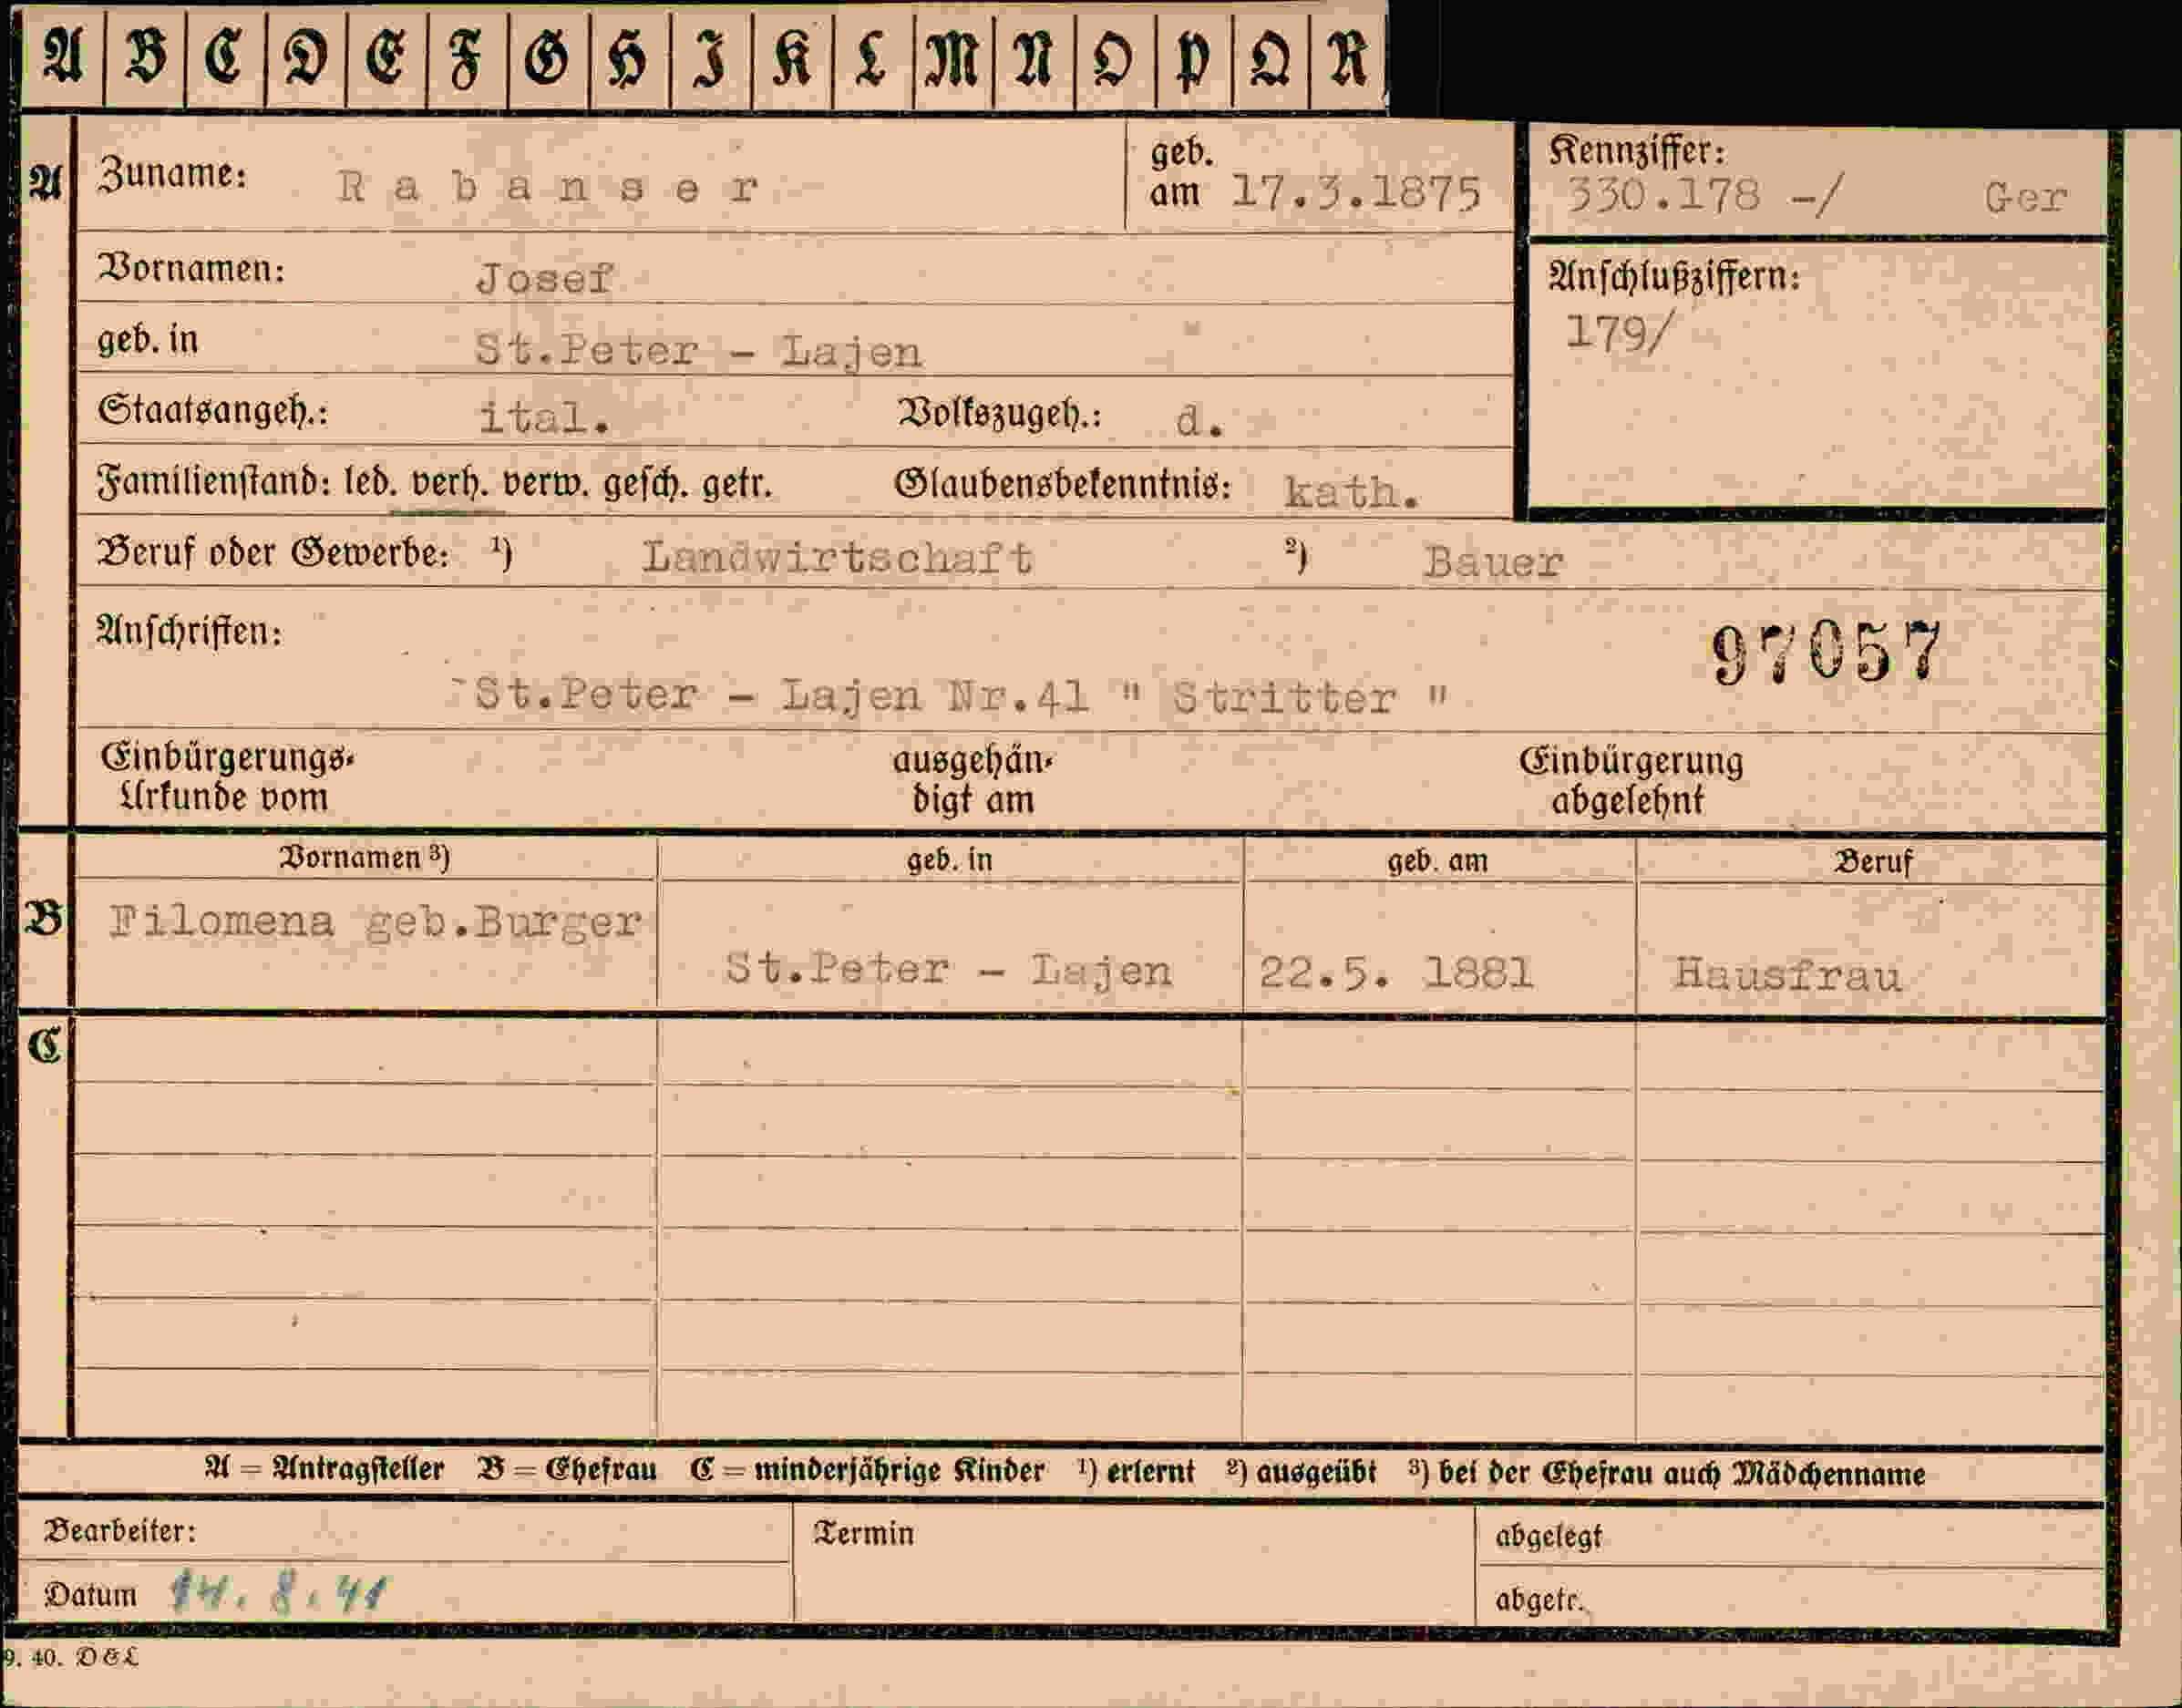 A B C D E F G H I K L M N O P Q R
A Zuname: Rabanser geb. am 17.3.1875
Kennziffer: 330.178 -/ Ger
Vornamen: Josef
Anschlußziffern: 179/
geb. in St.Peter - Lajen
Staatsangeh.: ital. Volkszugeh.: d.
Familienstand: led. verh. verw. gesch. getr. Glaubensbekenntnis: kath.
Beruf oder Gewerbe: ¹) Landwirtschaft ²) Bauer
Anschriften: 97057
St.Peter - Lajen Nr.41 " Stritter "
Einbürgerungs- ausgehän- Einbürgerung
Urkunde vom digt am abgelehnt
Vornamen ³) geb. in geb. am Beruf
B Filomena geb.Burger
St.Peter - Lajen 22.5. 1881 Hausfrau
C
A = Antragsteller B = Ehefrau C = minderjährige Kinder ¹) erlernt ²) ausgeübt ³) bei der Ehefrau auch Mädchenname
Bearbeiter: Termin abgelegt
Datum 14.8.41 abgetr.
9. 40. D&L